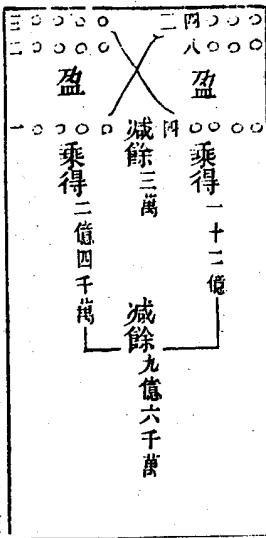 二四〇〇〇
八〇〇〇
盈
四〇〇〇〇
乘得一十二億
減餘三萬
減餘九億六千萬
三〇〇〇〇
二〇〇〇〇
盈
一〇〇〇〇
乘得二億四千萬